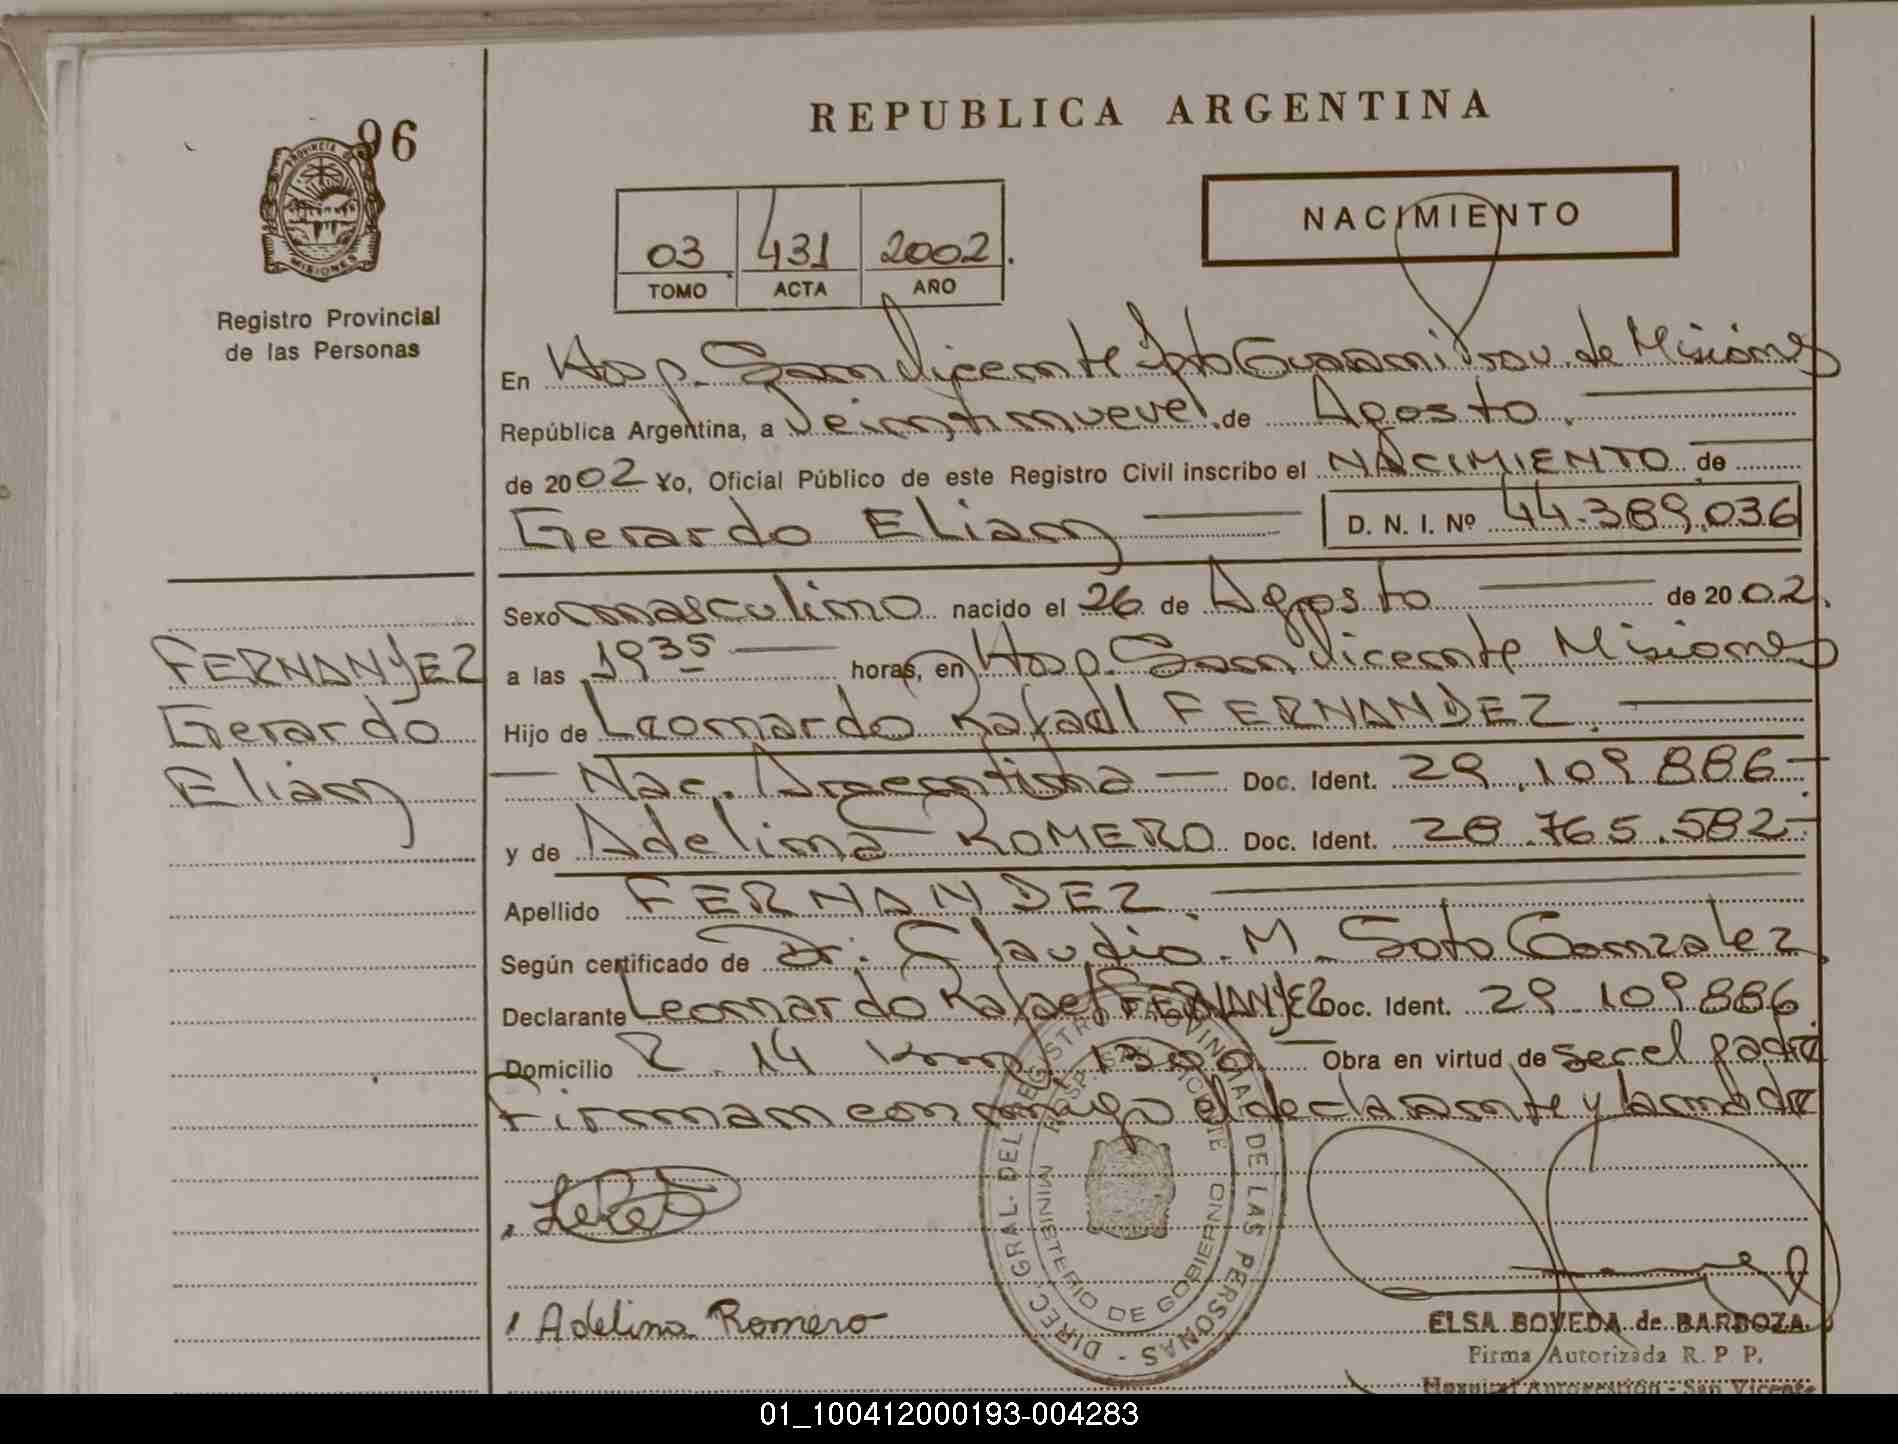 96
REPUBLICA ARGENTINA
PROVINCIA DE
MISIONES
Registro Provincial
de las Personas
03 431 2002
TOMO ACTA AÑO
NACIMIENTO
En Hosp. San Vicente Dpto Guarani Prov. de Misiones
República Argentina, a Veintinueve de Agosto
de 2002 Yo, Oficial Público de este Registro Civil inscribo el NACIMIENTO de
Gerardo Elian D. N. I. Nº 44.389.036
Sexo masculino nacido el 26 de Agosto de 2002.
a las 1935 horas, en Hosp. San Vicente Misiones
Hijo de Leonardo Rafael FERNANDEZ.
Nac. Argentina Doc. Ident. 29.109.886
y de Adelina ROMERO Doc. Ident. 28.765.582
Apellido FERNANDEZ.
Según certificado de Dr. Claudio. M. Soto Gonzalez
Declarante Leonardo Rafael FERNANDEZ Doc. Ident. 29.109.886
Domicilio R. 14 Km 1300 Obra en virtud de ser el padre
Firman conmigo el declarante y la madre
FERNANDEZ
Gerardo
Elian
DIREC. GRAL. DEL REGISTRO PROVINCIAL DE LAS PERSONAS
MINISTERIO DE GOBIERNO
Adelina Romero
ELSA BOVEDA de BARBOZA
Firma Autorizada R. P P.
Hospital Autogestión - San Vicente
01_100412000193-004283